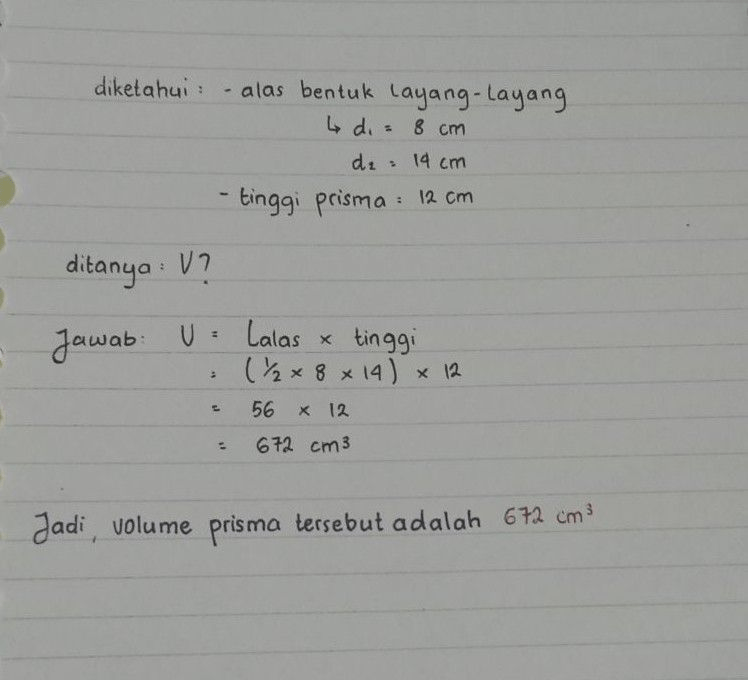 diketahui : - alas bentuk layang-layang
↳ d₁ = 8 cm
d₂ = 14 cm
- tinggi prisma = 12 cm
ditanya : V?
Jawab: V = Lalas × tinggi
= (1/2 × 8 × 14) × 12
= 56 × 12
= 672 cm³
Jadi, volume prisma tersebut adalah 672 cm³